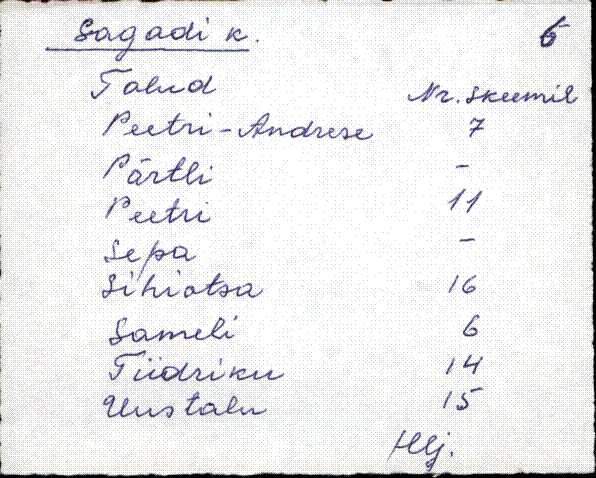 Sagadi k. 6
Talud Nr. skeemil
Peetri-Andrese 7
Pärtli -
Peetri 11
Sepa -
Sihiotsa 16
Sameli 6
Tiidriku 14
Uustalu 15
Hlj.